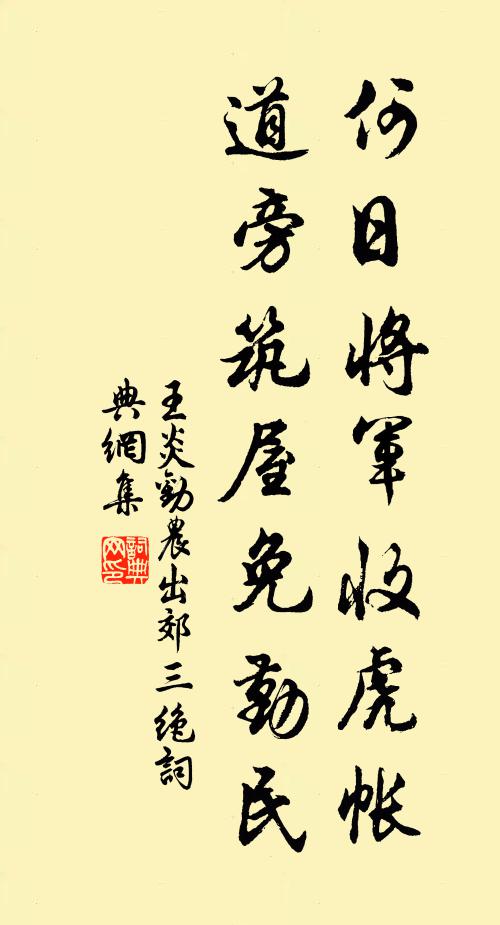 何日將軍收虎帐
道旁筑屋免勤民
王炎勸農出郊三絶詞
典網集
詞典网印